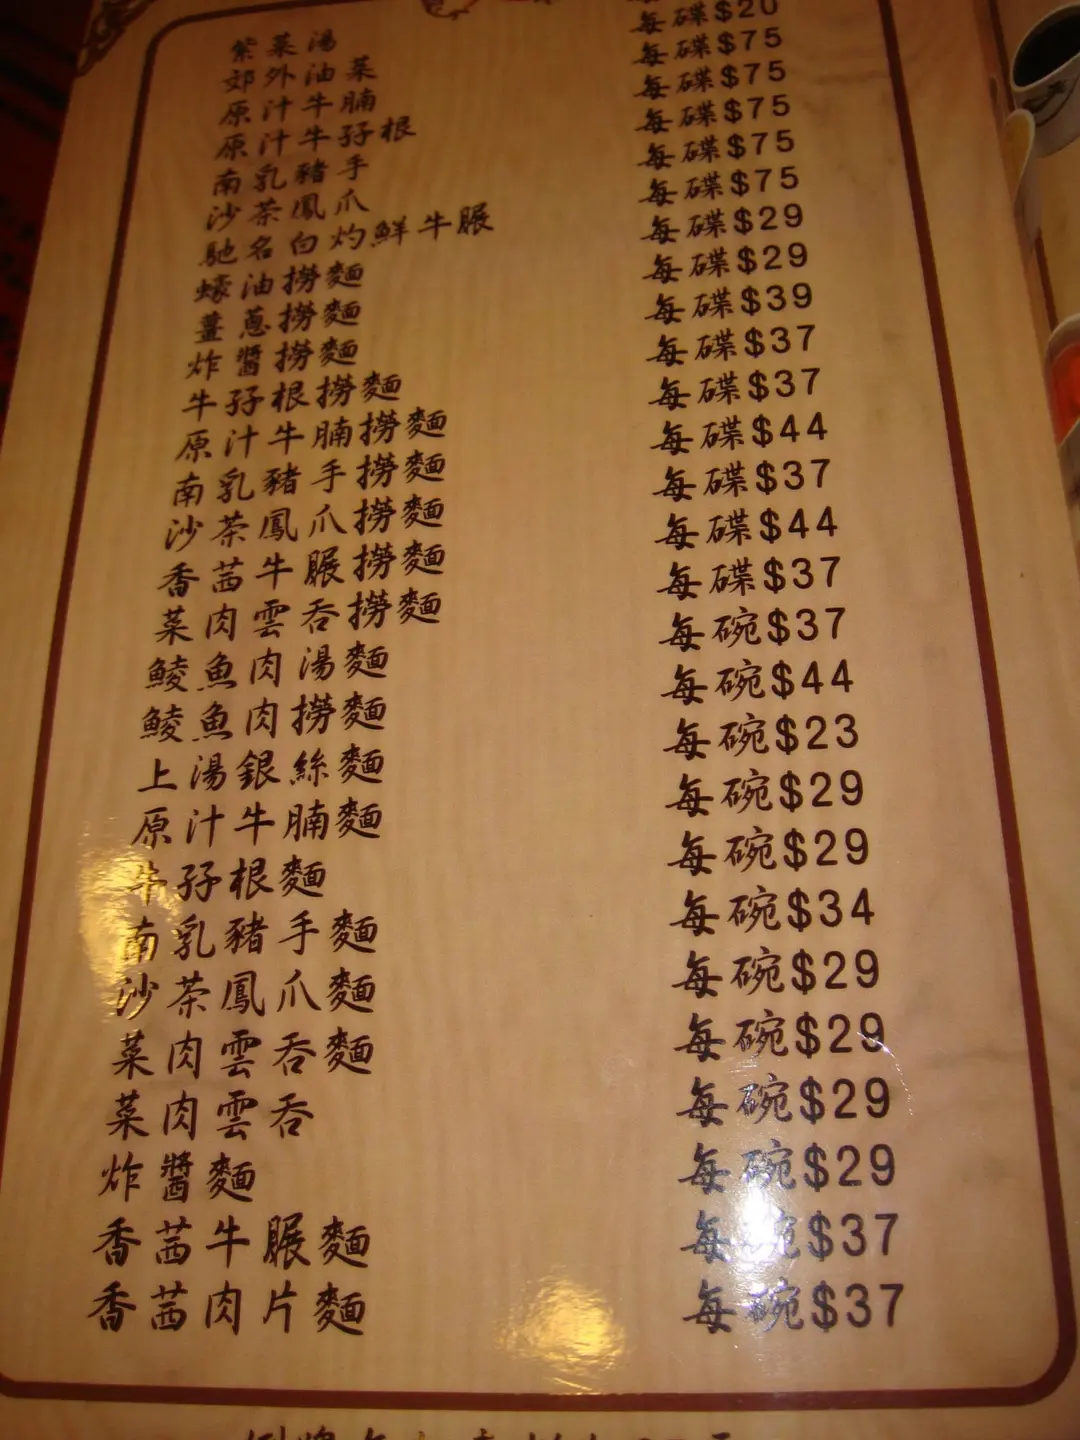 紫菜湯
郊外油菜 每碟$20
原汁牛腩 每碟$75
原汁牛孖根 每碟$75
南乳豬手 每碟$75
沙茶鳳爪 每碟$75
馳名白灼鮮牛𦟌 每碟$75
蠔油撈麵 每碟$29
薑蔥撈麵 每碟$29
炸醬撈麵 每碟$39
牛孖根撈麵 每碟$37
原汁牛腩撈麵 每碟$37
南乳豬手撈麵 每碟$44
沙茶鳳爪撈麵 每碟$37
香茜牛𦟌撈麵 每碟$44
菜肉雲吞撈麵 每碟$37
鯪魚肉湯麵 每碗$37
鯪魚肉撈麵 每碗$44
上湯銀絲麵 每碗$23
原汁牛腩麵 每碗$29
牛孖根麵 每碗$29
南乳豬手麵 每碗$34
沙茶鳳爪麵 每碗$29
菜肉雲吞麵 每碗$29
菜肉雲吞 每碗$29
炸醬麵 每碗$29
香茜牛𦟌麵 每碗$37
香茜肉片麵 每碗$37